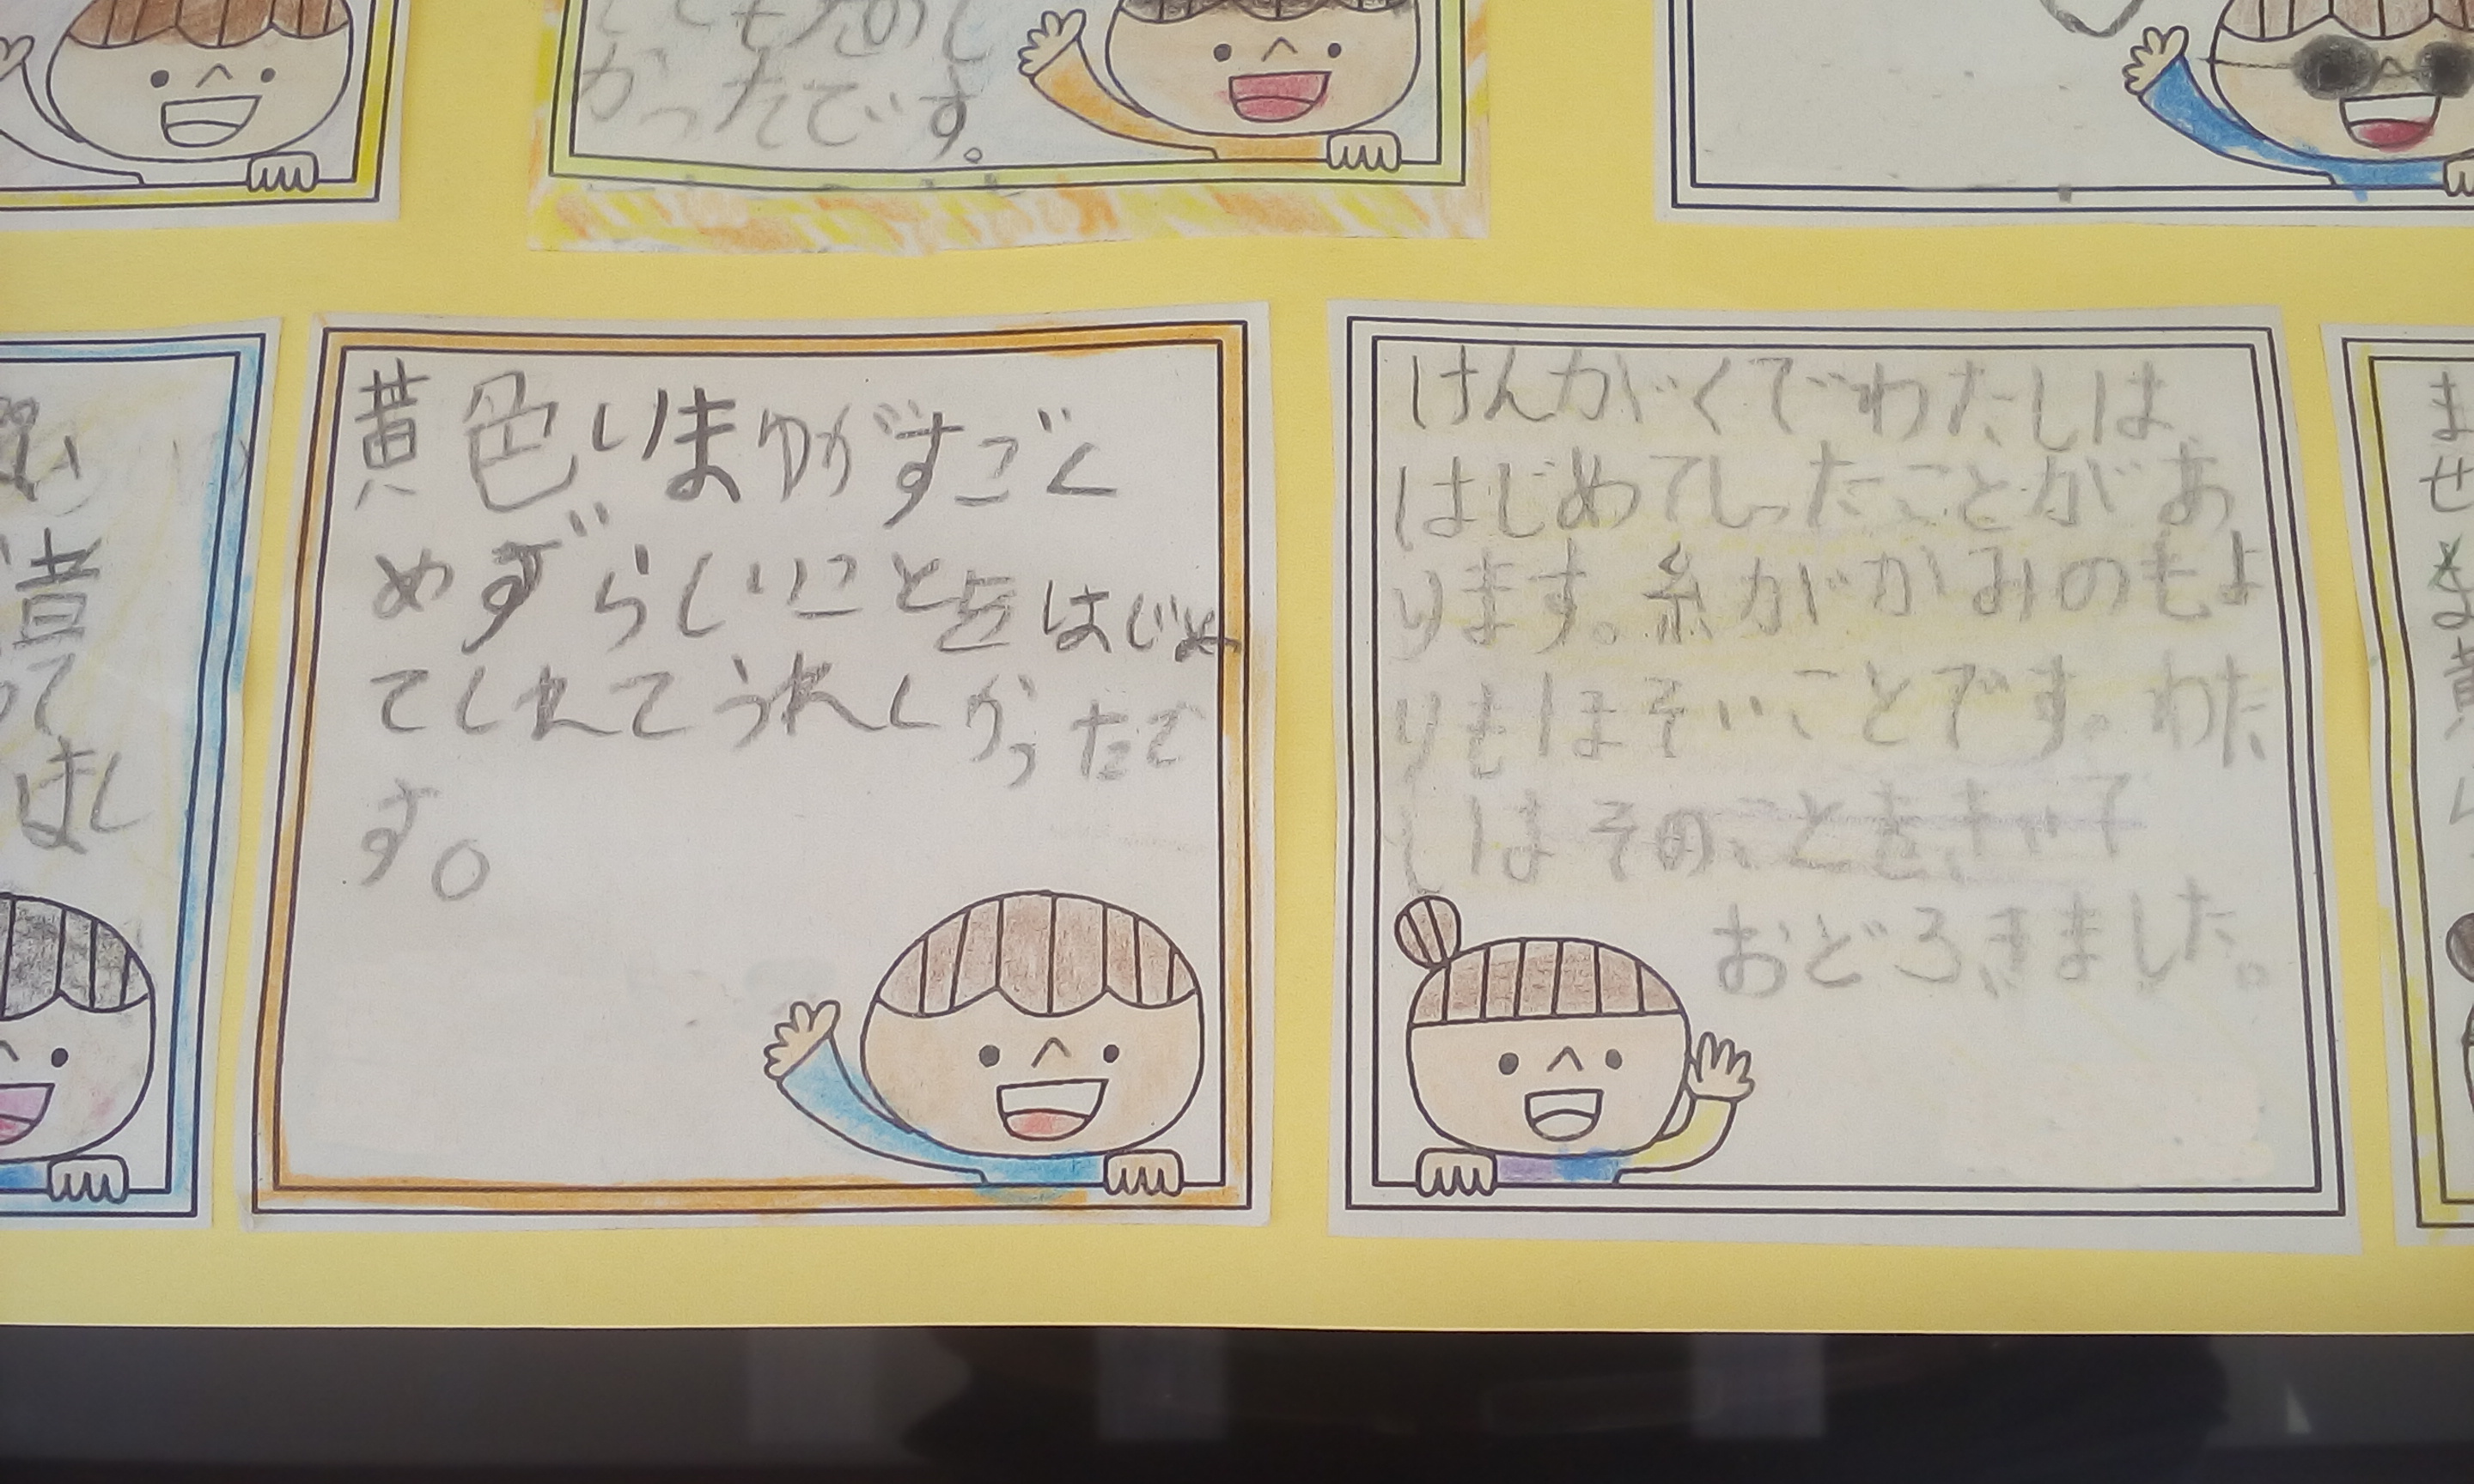 とてもたのし
かったです。
黄色いまゆがすごく
めずらしいことをはじめ
てしれてうれしかったで
す。
けんがくでわたしは
はじめてしったことがあ
ります。糸ががみのもよ
りもほそいことです。わた
しはそのことをきいて
おどろきました。
着
って
まし
ま
せ
ま
黄
し